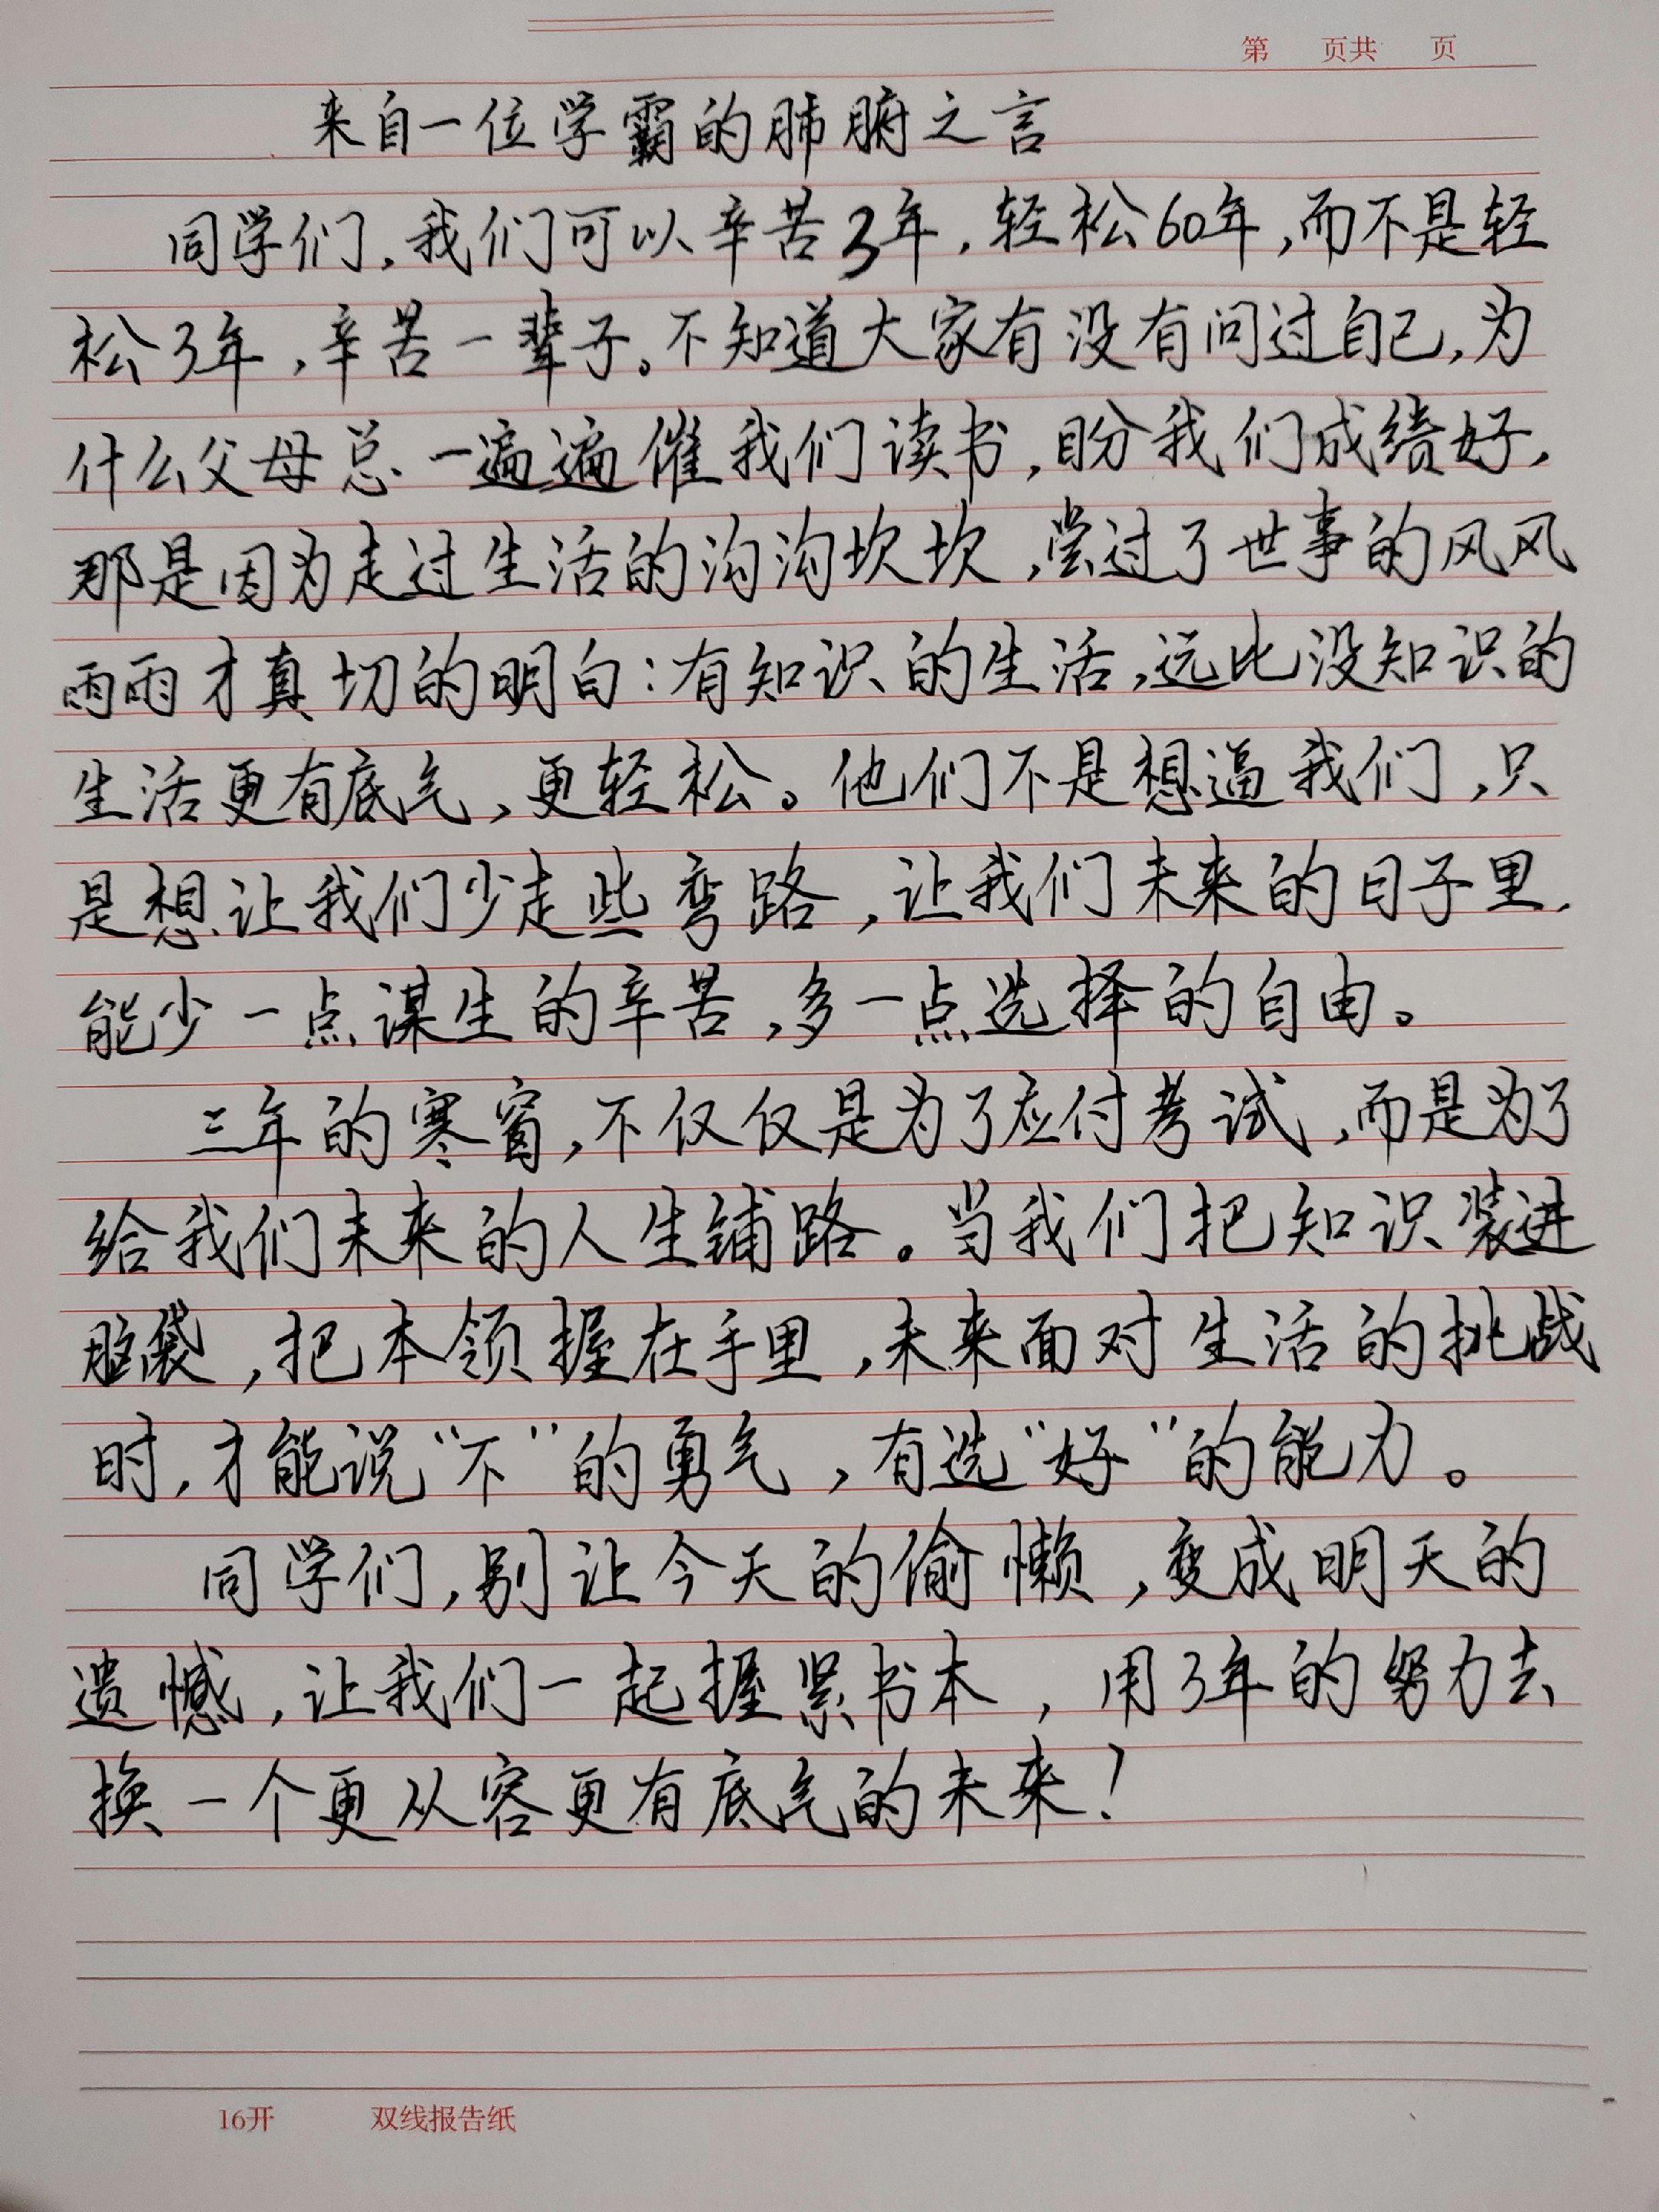 第 页共 页
来自一位学霸的肺腑之言
同学们,我们可以辛苦3年,轻松60年,而不是轻
松3年,辛苦一辈子。不知道大家有没有问过自己,为
什么父母总一遍遍催我们读书,盼我们成绩好,
那是因为走过生活的沟沟坎坎,尝过了世事的风风
雨雨才真切的明白:有知识的生活,远比没知识的
生活更有底气,更轻松。他们不是想逼我们,只
是想让我们少走些弯路,让我们未来的日子里,
能少一点谋生的辛苦,多一点选择的自由。
三年的寒窗,不仅仅是为了应付考试,而是为了
给我们未来的人生铺路。当我们把知识装进
脑袋,把本领握在手里,未来面对生活的挑战
时,才能说“不”的勇气,有选“好”的能力。
同学们,别让今天的偷懒,变成明天的
遗憾,让我们一起握紧书本,用3年的努力去
换一个更从容更有底气的未来!
16开 双线报告纸